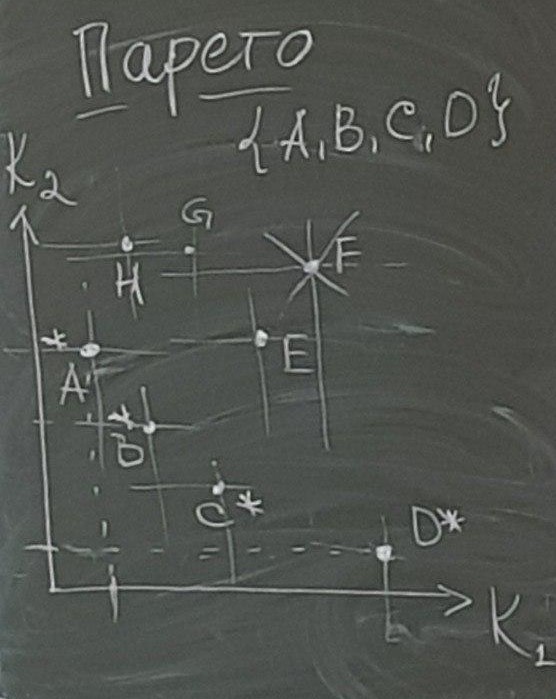 Парето
{A, B, C, D}
K2
G
H
F
* A
E
* B
C *
D *
K1